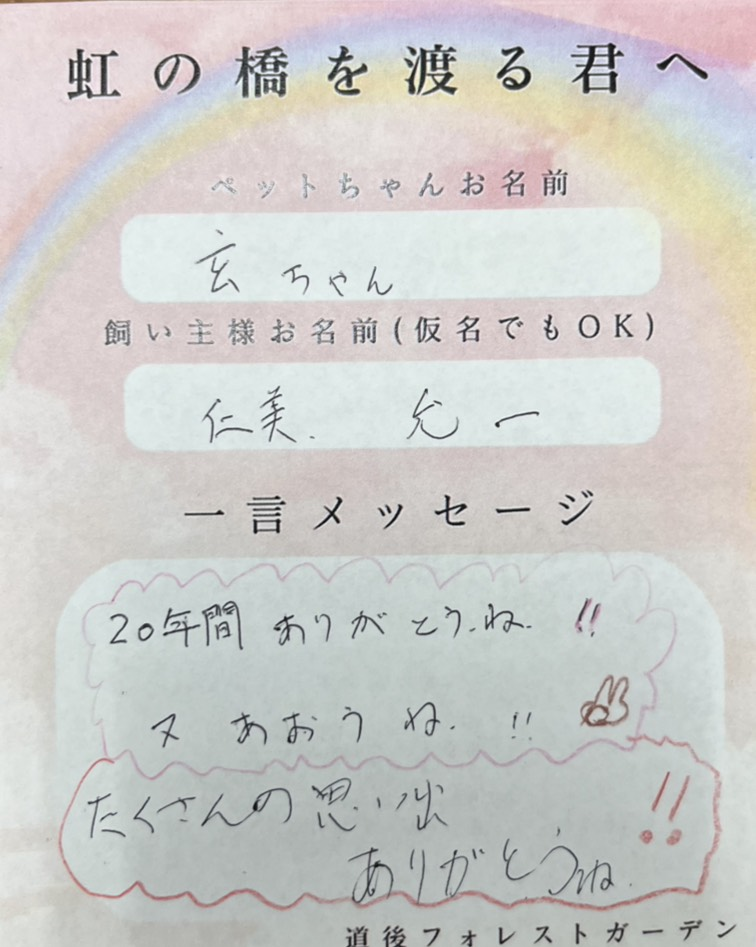 虹の橋を渡る君へ
ペットちゃんお名前
玄ちゃん
飼い主様お名前(仮名でもOK)
仁美. 允一
一言メッセージ
20年間ありがとう.ね. !!
又あおうね. !!
たくさんの思い出 !!
ありがとうね.
道後フォレストガーデン